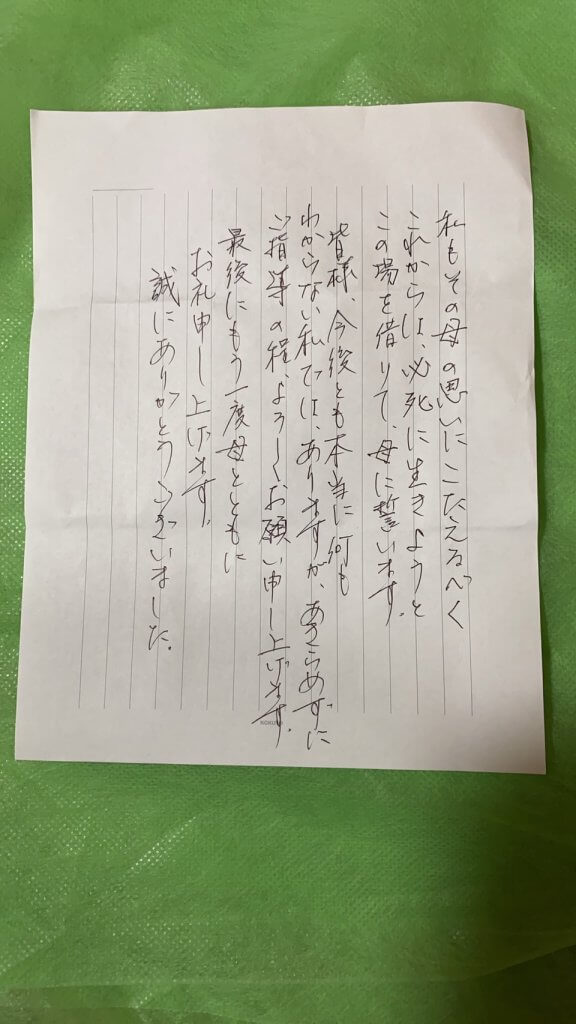 私もその母の思いにこたえるべく
これからは、必死に生きようと
この場を借りて、母に誓います。
皆様、今後とも本当に何も
わからない私では、ありますが、あきらめずに
ご指導の程、よろしくお願い申し上げます。
最後にもう一度母とともに
お礼申し上げます。
誠にありがとうございました。
KOKUYO